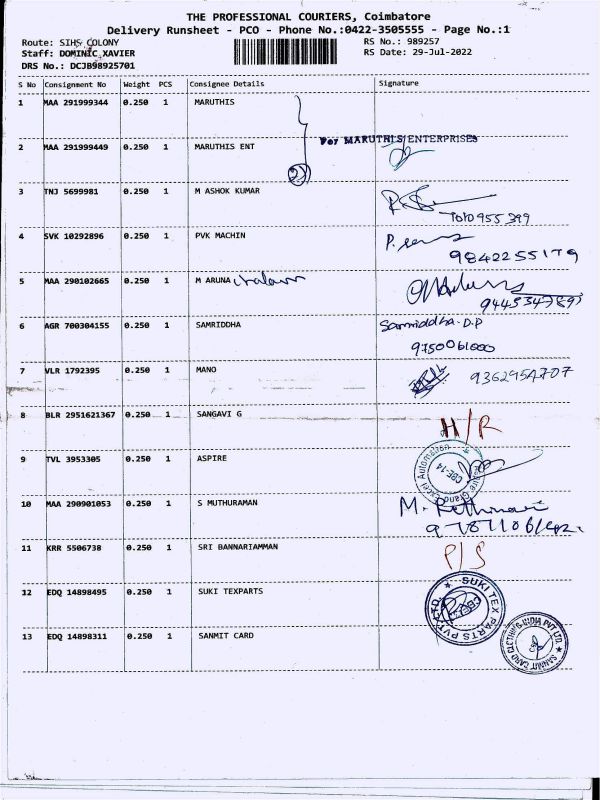 THE PROFESSIONAL COURIERS, Coimbatore
Delivery Runsheet - PCO - Phone No.:0422-3505555 - Page No.:1
Route: SIHS COLONY
RS No.: 989257
Staff: DOMINIC XAVIER
RS Date: 29-Jul-2022
DRS No.: DCJB98925701
S No Consignment No Weight PCS Consignee Details Signature
1 MAA 291999344 0.250 1 MARUTHIS
For MARUTHIS ENTERPRISES
2 MAA 291999449 0.250 1 MARUTHIS ENT
2
3 TNJ 5699981 0.250 1 M ASHOK KUMAR
4 SVK 10292896 0.250 1 PVK MACHIN
9842255179
5 MAA 290102665 0.250 1 M ARUNA
6 AGR 700304155 0.250 1 SAMRIDDHA Samriddha.D.P
9750061000
7 VLR 1792395 0.250 1 MANO
8 BLR 2951621367 0.250 1 SANGAVI G H/R
9 TVL 3953305 0.250 1 ASPIRE
CBE-14
10 MAA 290901053 0.250 1 S MUTHURAMAN
11 KRR 5506738 0.250 1 SRI BANNARIAMMAN P/S
12 EDQ 14898495 0.250 1 SUKI TEXPARTS
SUKI TEX PARTS PVT LTD.
13 EDQ 14898311 0.250 1 SANMIT CARD
SANMIT CARD CLOTHING INDIA PVT LTD.